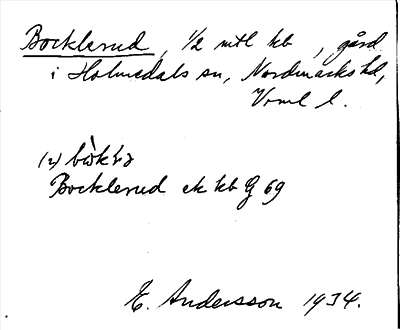 Bocklerud, 1/2 mtl kb, gård
i Holmedals sn, Nordmarks hd,
Vrml l.
Bocklerud ek kb G 69
E. Andersson 1934.